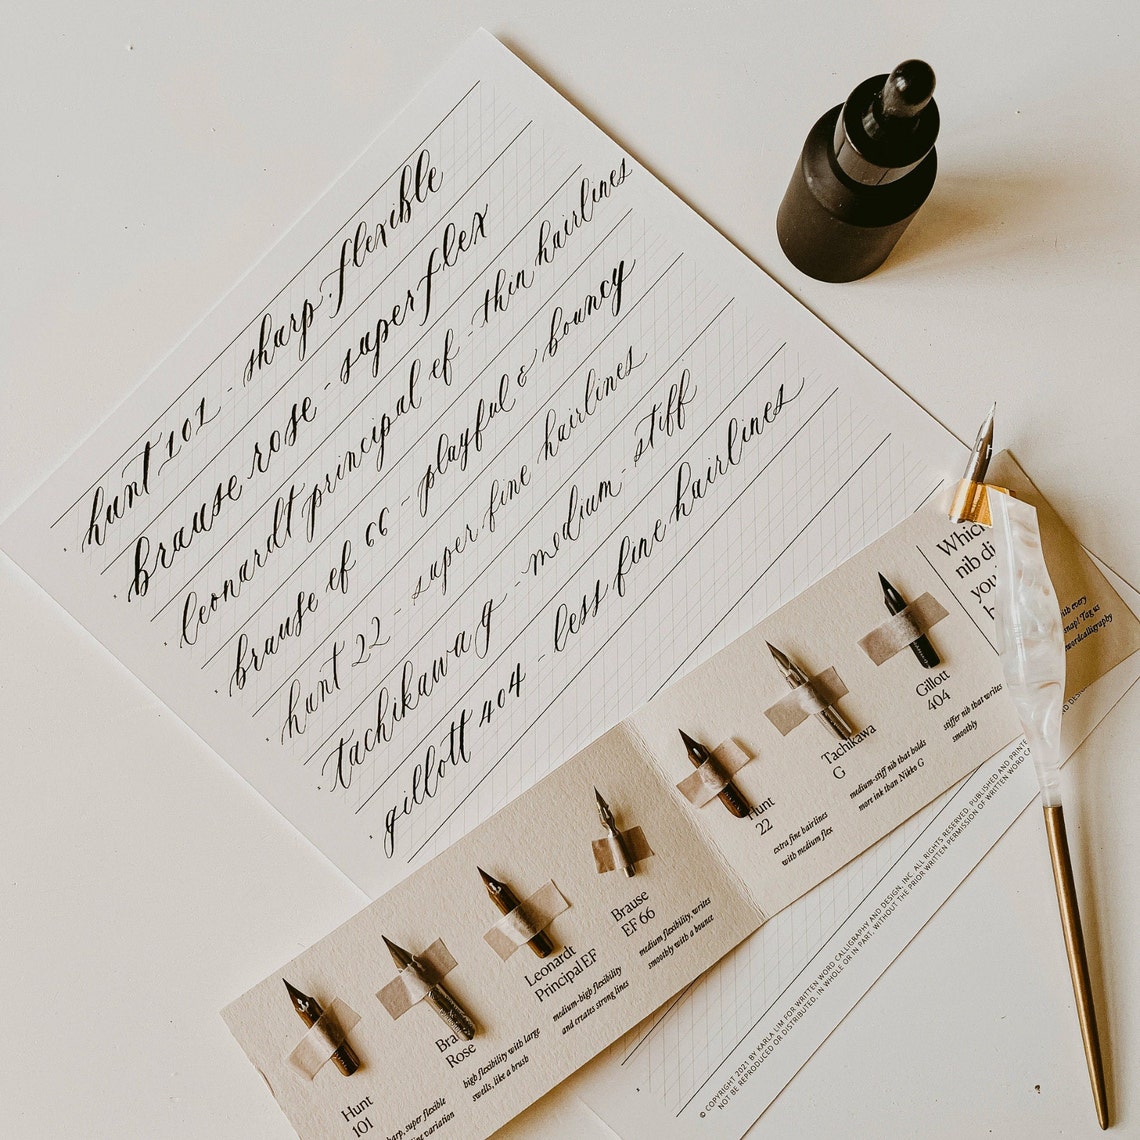 hunt 101 - sharp. flexible
brause rose - super flex
leonardt principal ef - thin hairlines
brause ef 66 - playful & bouncy
hunt 22 - super fine hairlines
tachikawa g - medium - stiff
gillott 404 - less fine hairlines
Hunt
101
super flexible
variation
Rose
high flexibility with large
swells, like a brush
Leonardt
Principal EF
medium-high flexibility
and creates strong lines
Brause
EF 66
medium flexibility, writes
smoothly with a bounce
Hunt
22
extra fine hairlines
with medium flex
Tachikawa
G
medium-stiff nib that holds
more ink than Nikko G
Gillott
404
stiffer nib that writes
smoothly
nib
every
snap! Tag us
© COPYRIGHT 2021 BY KARLA LIM FOR WRITTEN WORD CALLIGRAPHY AND DESIGN, INC. ALL RIGHTS RESERVED. PUBLISHED AND
NOT BE REPRODUCED OR DISTRIBUTED, IN WHOLE OR IN PART, WITHOUT THE PRIOR WRITTEN PERMISSION OF WRITTEN WORD